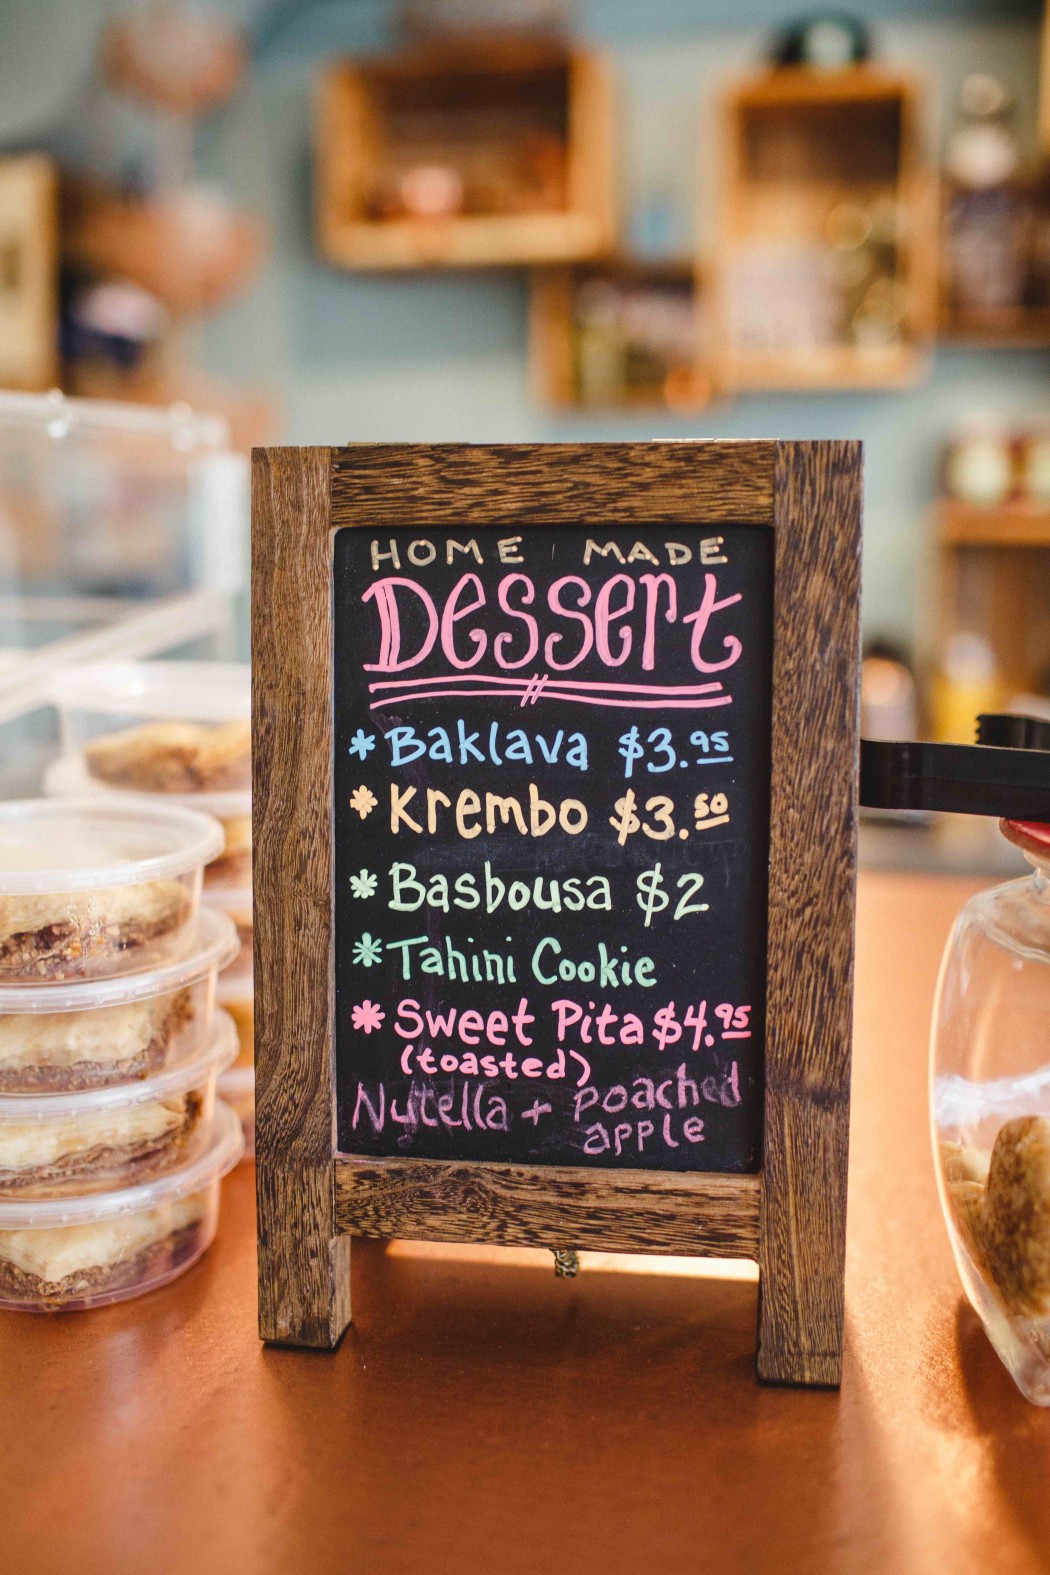 HOME MADE
Dessert
* Baklava $3.95
* Krembo $3.50
* Basbousa $2
* Tahini Cookie
* Sweet Pita $4.95
(toasted)
Nutella + poached
apple